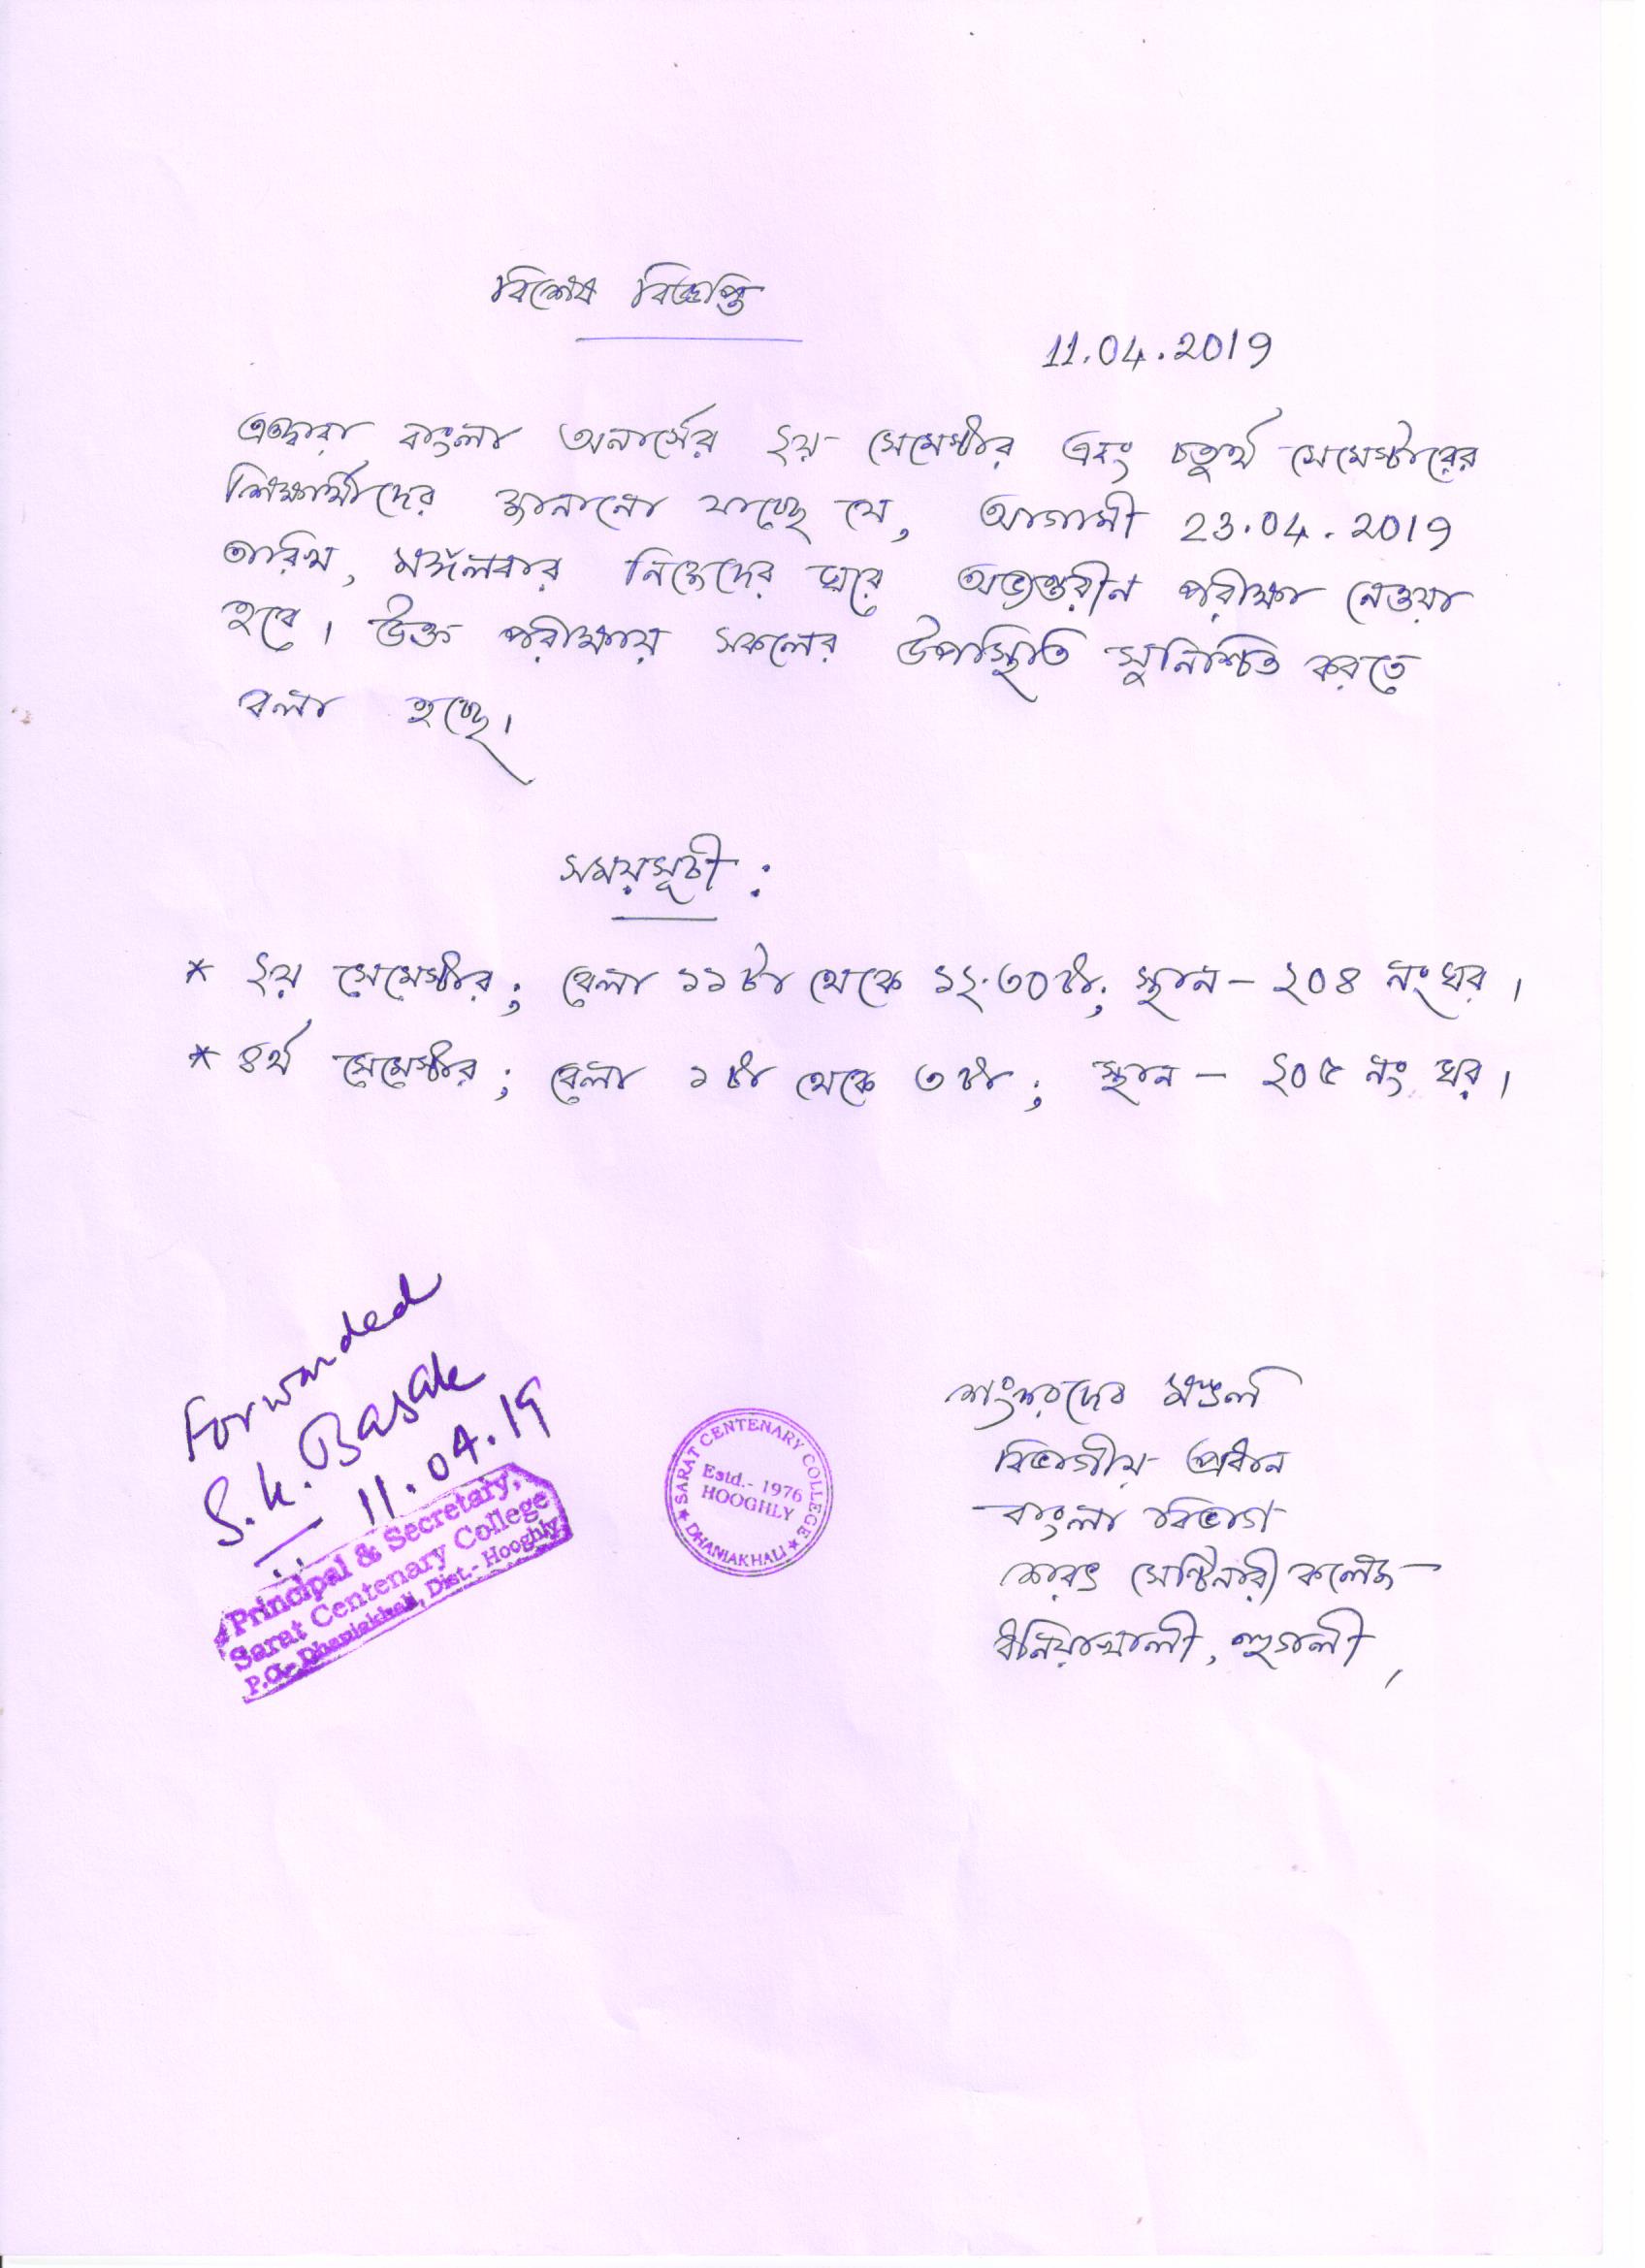 বিশেষ বিজ্ঞপ্তি
11.04.2019
এতদ্বারা বাংলা অনার্সের ২য় সেমেস্টার এবং চতুর্থ সেমেস্টারের
শিক্ষার্থীদের জানানো যাচ্ছে যে, আগামী 23.04.2019
তারিখ, মঙ্গলবার নিজেদের ঘরে অভ্যন্তরীন পরীক্ষা নেওয়া
হবে। উক্ত পরীক্ষায় সকলের উপস্থিতি সুনিশ্চিত করতে
বলা হচ্ছে।
সময়সূচী :
* ২য় সেমেস্টার; বেলা ১১টা থেকে ১২.৩০টা; স্থান - ২০৪ নং ঘর।
* ৪র্থ সেমেস্টার; বেলা ১টা থেকে ৩টা; স্থান - ২০৫ নং ঘর।
Forwarded
S.K. Basak
11.04.19
Principal & Secretary,
Sarat Centenary College
P.O.- Dhaniakhali, Dist.- Hooghly
SARAT CENTENARY COLLEGE
Estd.- 1976
HOOGHLY
★ DHANIAKHALI ★
মণ্ডল
বিভাগীয় প্রধান
বাংলা বিভাগ
শরৎ সেন্টিনারী কলেজ
ধনিয়াখালী, হুগলী,